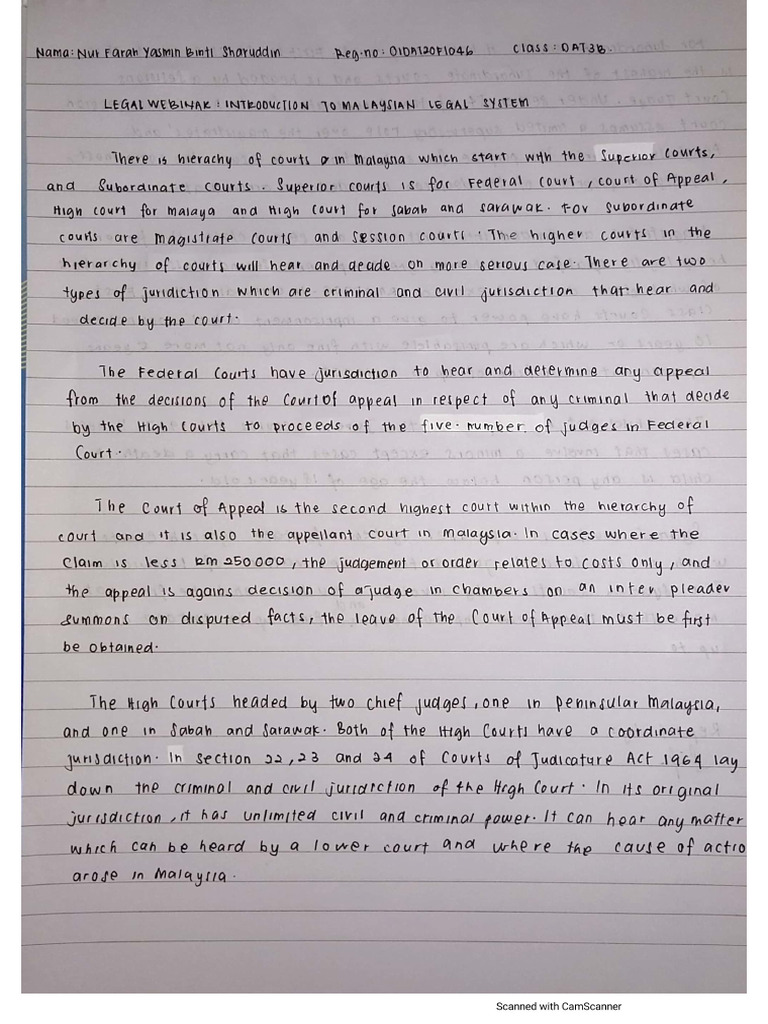 Nama: Nur Farah Yasmin Binti Sharuddin Reg.no: 01DAT20F1046 Class: DAT3B.
LEGAL WEBINAR: INTRODUCTION TO MALAYSIAN LEGAL SYSTEM
There is hierachy of courts in Malaysia which start with the Superior Courts,
and Subordinate courts. Superior courts is for Federal Court, court of Appeal,
High court for malaya and High Court for Sabah and Sarawak. For Subordinate
courts are magistrate courts and session courts. The higher courts in the
hierarchy of courts will hear and decide on more serious case. There are two
types of juridiction which are criminal and civil jurisdiction that hear and
decide by the court.
The Federal Courts have jurisdiction to hear and determine any appeal
from the decisions of the Court of appeal in respect of any criminal that decide
by the High Courts to proceeds of the five number of judges in Federal
Court.
The Court of Appeal is the second highest court within the hierarchy of
court and it is also the appellant court in malaysia. In cases where the
claim is less RM 250 000, the judgement or order relates to costs only, and
the appeal is agains decision of a judge in chambers on an inter pleader
summons on disputed facts, the leave of the Court of Appeal must be first
be obtained.
The High Courts headed by two chief judges, one in Peninsular Malaysia,
and one in Sabah and Sarawak. Both of the High Courts have a coordinate
jurisdiction. In section 22, 23 and 24 of Courts of Judicature Act 1964 lay
down the criminal and civil jurisdiction of the High Court. In its original
jurisdiction, it has unlimited civil and criminal power. It can hear any matter
which can be heard by a lower court and where the cause of actio
arose in Malaysia.
Scanned with CamScanner